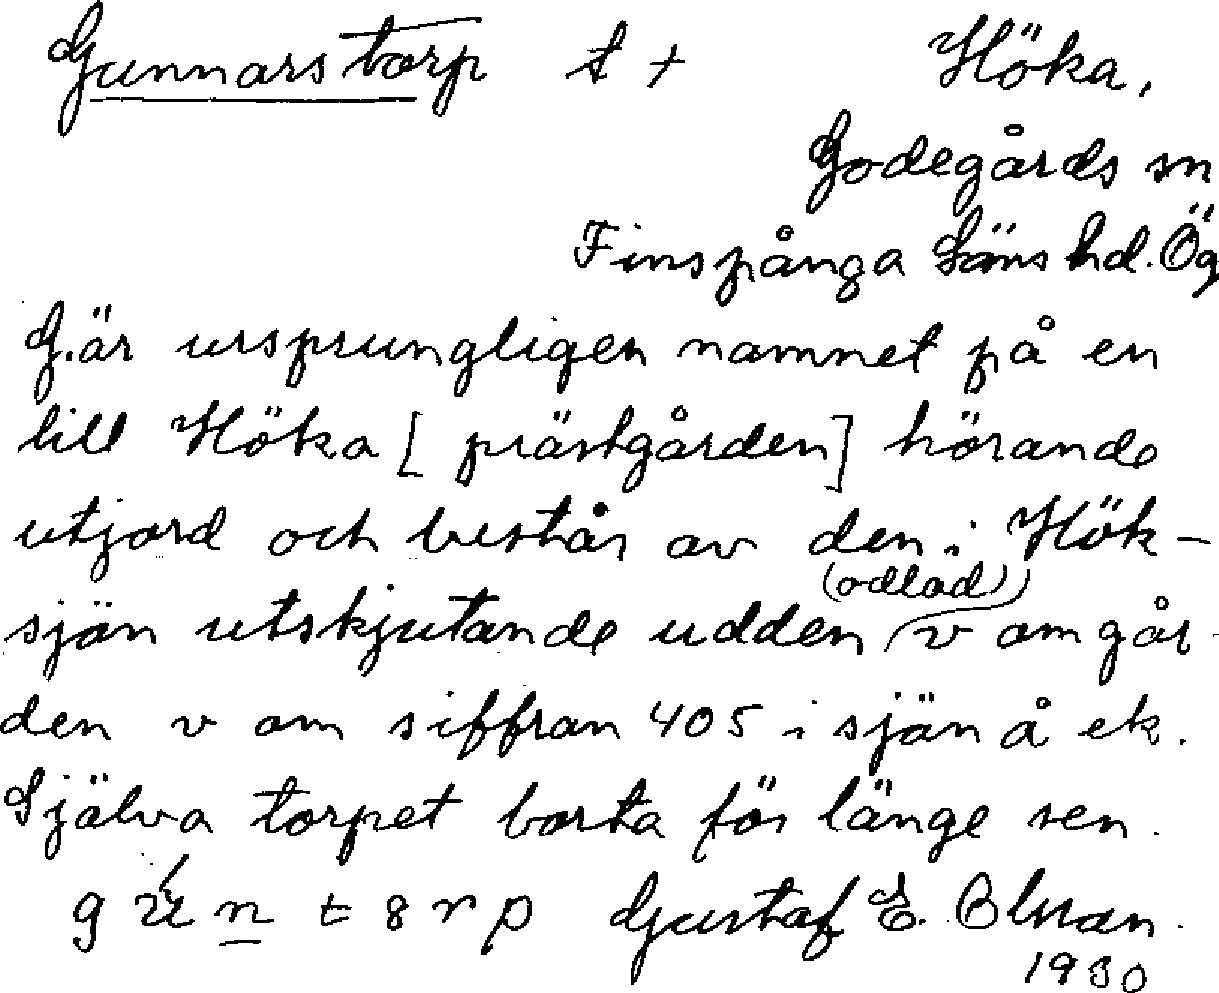 Gunnarstorp t +
Höka,
Godegårds sn
Finspånga läns hd. Ög
G. är ursprungligen namnet på en
till Höka [prästgården] hörande
utjord och består av den i Hök-
sjön utskjutande udden (odlad) v om går-
den v om siffran 405 i sjön å ek.
Själva torpet borta för länge sen.
Gustaf E. Olsson.
1930